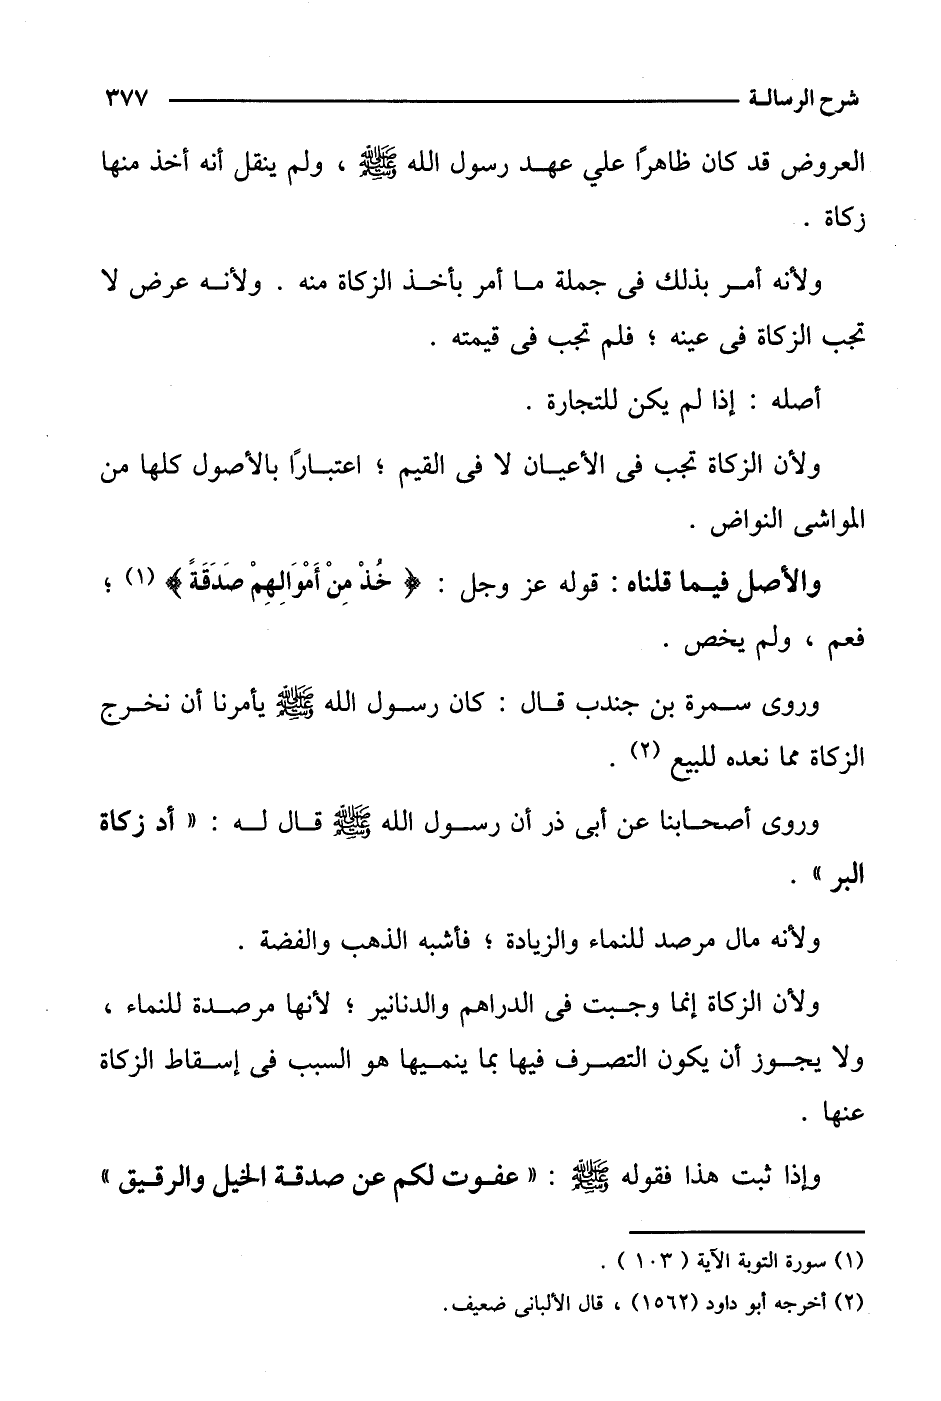 شرح الرسالة ٣٧٧
العروض قد كان ظاهرًا علي عهد رسول الله ﷺ ، ولم ينقل أنه أخذ منها
زكاة .
ولأنه أمر بذلك فى جملة ما أمر بأخذ الزكاة منه . ولأنه عرض لا
تجب الزكاة فى عينه ؛ فلم تجب فى قيمته .
أصله : إذا لم يكن للتجارة .
ولأن الزكاة تجب فى الأعيان لا فى القيم ؛ اعتبارًا بالأصول كلها من
المواشى النواض .
والأصل فيما قلناه : قوله عز وجل : ﴿ خُذْ مِنْ أَمْوَالِهِمْ صَدَقَةً ﴾ (١) ؛
فعم ، ولم يخص .
وروى سمرة بن جندب قال : كان رسول الله ﷺ يأمرنا أن نخرج
الزكاة مما نعده للبيع (٢) .
وروى أصحابنا عن أبى ذر أن رسول الله ﷺ قال له : « أد زكاة
البر » .
ولأنه مال مرصد للنماء والزيادة ؛ فأشبه الذهب والفضة .
ولأن الزكاة إنما وجبت فى الدراهم والدنانير ؛ لأنها مرصدة للنماء ،
ولا يجوز أن يكون التصرف فيها بما ينميها هو السبب فى إسقاط الزكاة
عنها .
وإذا ثبت هذا فقوله ﷺ : « عفوت لكم عن صدقة الخيل والرقيق »
(١) سورة التوبة الآية ( ١٠٣ ) .
(٢) أخرجه أبو داود (١٥٦٢) ، قال الألبانى ضعيف.